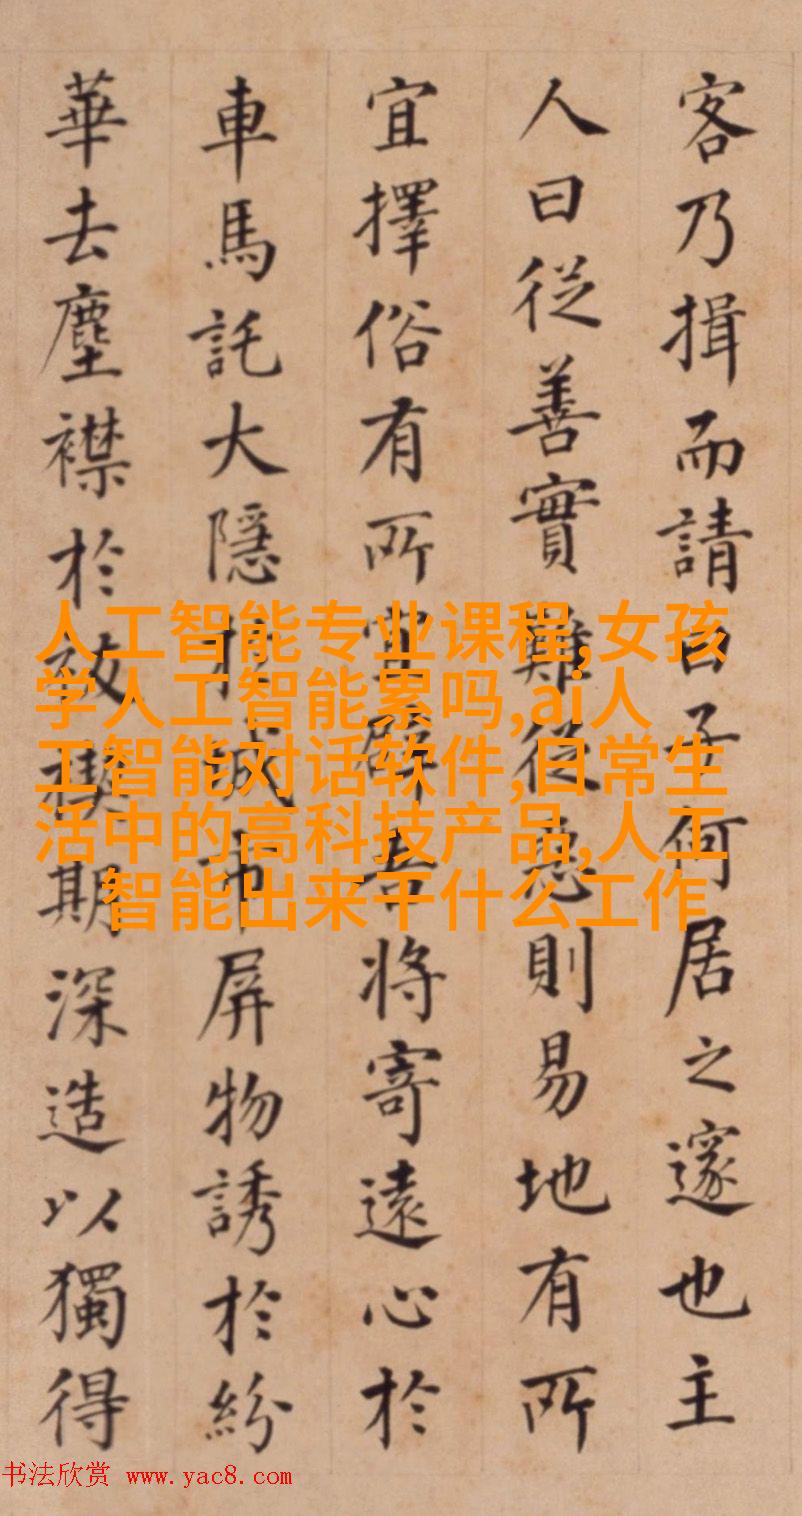 客乃揖而請曰子何居之邃也主
人曰從善實難從惡則易地有所
宜擇俗有所吾將寄遠心於
車馬託大隱於城市屏物誘於紛
華去塵襟於期深造以獨得
人工智能专业课程,女孩
学人工智能累吗,ai人
工智能对话软件,日常生
活中的高科技产品,人工
智能出来干什么工作
书法欣赏 www.yac8.com